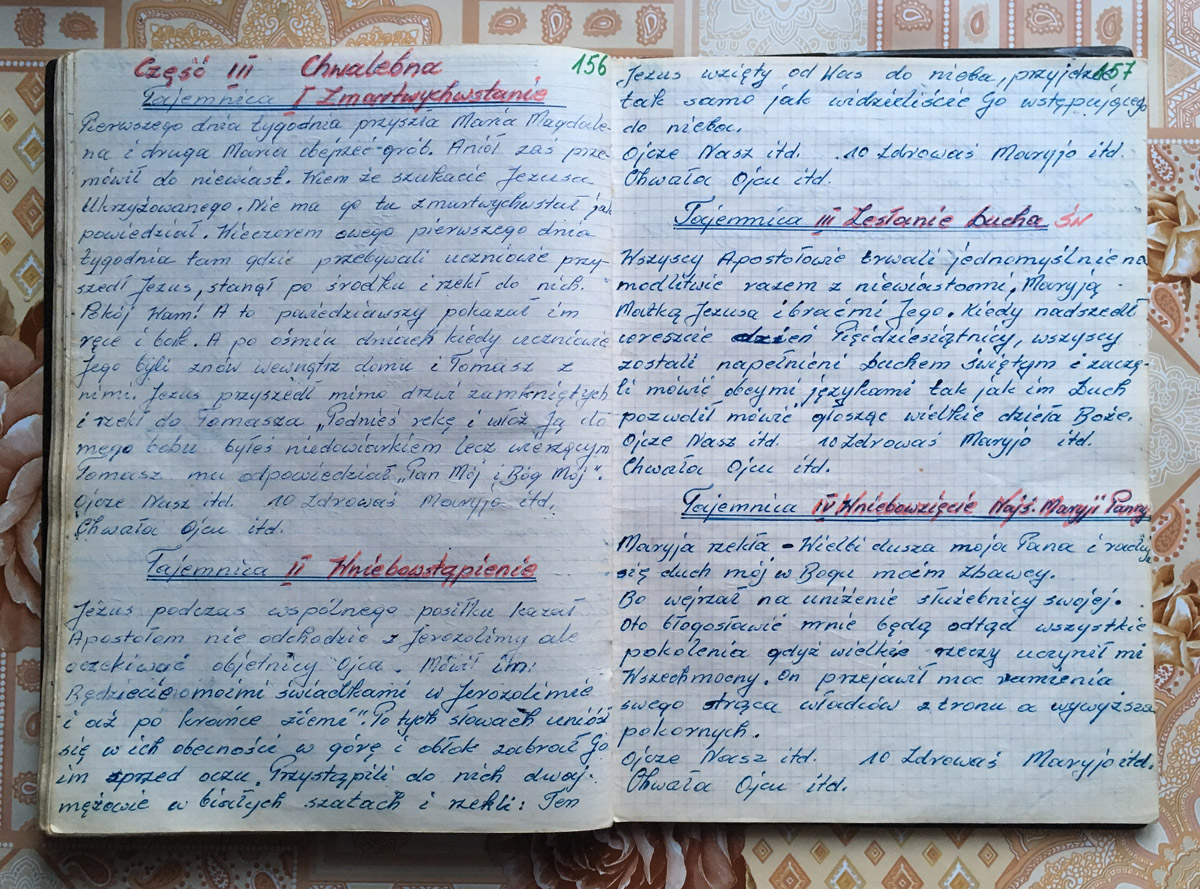 156
Część III Chwalebna
Tajemnica I Zmartwychwstanie
Pierwszego dnia tygodnia przyszła Maria Magdale-
na i druga Maria obejrzeć grób. Anioł zaś prze-
mówił do niewiast. Wiem że szukacie Jezusa
Ukrzyżowanego. Nie ma go tu zmartwychwstał jak
powiedział. Wieczorem owego pierwszego dnia
tygodnia tam gdzie przebywali uczniowie przy-
szedł Jezus, stanął po środku i rzekł do nich.
Pokój Wam! A to powiedziawszy pokazał im
ręce i bok. A po ośmiu dniach kiedy uczniowie
Jego byli znów wewnątrz domu i Tomasz z
nimi. Jezus przyszedł mimo drzwi zamkniętych
i rzekł do Tomasza „Podnieś rękę i włóż Ją do
mego boku byłeś niedowiarkiem lecz wierzącym
Tomasz mu odpowiedział „Pan Mój i Bóg Mój".
Ojcze Nasz itd. 10 Zdrowaś Maryjo itd.
Chwała Ojcu itd.
Tajemnica II Wniebowstąpienie
Jezus podczas wspólnego posiłku kazał
Apostołom nie odchodzić z Jerozolimy ale
oczekiwać obietnicy Ojca. Mówił im:
Będziecie moimi świadkami w Jerozolimie
i aż po krańce ziemi" Po tych słowach uniósł
się w ich obecności w górę i obłok zabrał Go
im sprzed oczu. Przystąpili do nich dwaj
mężowie w białych szatach i rzekli: Ten
157
Jezus wzięty od Was do nieba, przyjdzie
tak samo jak widzieliście Go wstępującego
do nieba.
Ojcze Nasz itd. 10 Zdrowaś Maryjo itd.
Chwała Ojcu itd.
Tajemnica III Zesłanie Ducha ŚW
Wszyscy Apostołowie trwali jednomyślnie na
modlitwie razem z niewiastami, Maryją
Matką Jezusa i braćmi Jego. Kiedy nadszedł
wreszcie dzień Pięćdziesiątnicy, wszyscy
zostali napełnieni Duchem Świętym i zaczę-
li mówić obcymi językami tak jak im Duch
pozwolił mówić głosząc wielkie dzieła Boże.
Ojcze Nasz itd. 10 Zdrowaś Maryjo itd.
Chwała Ojcu itd.
Tajemnica IV Wniebowzięcie Najś. Maryji Panny
Maryja rzekła - Wielbi dusza moja Pana i raduj
się duch mój w Bogu moim Zbawcy.
Bo wejrzał na uniżenie służebnicy swojej.
Oto błogosławić mnie będą odtąd wszystkie
pokolenia gdyż wielkie rzeczy uczynił mi
Wszechmocny. On przejawił moc ramienia
swego strąca władców z tronu a wywyższa
pokornych.
Ojcze Nasz itd. 10 Zdrowaś Maryjo itd.
Chwała Ojcu itd.